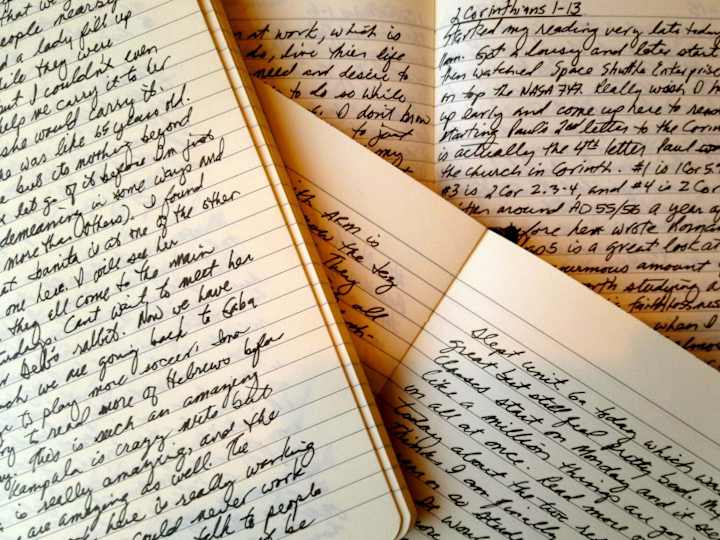 that we
people nearby
d a lady fill up
while they were
but I couldn't even
help me carry it to her
she would carry it.
she was like 65 years old.
but its nothing beyond
let go of it before I'm just
demeaning in some ways and
more than (others). I found
at Danita is at one of the other
one here. I will see her
they all come to the main
Sundays. Can't want to meet her
Deb's rabbit. Now we have
we are going back to
to play more soccer.
to read more of Hebrews before
This is such an amazing
Kampala is crazy nuts but
is really amazing, and the
are amazing as well. The
here is really working
could never work
talk to people
be
at work, which is
do, live thier life
need and desire to
to do so while
I don't know
to just
my
ARM is
the
They
all
2 Corinthians 1-13
Started my reading very late today
11am. Got a lousy and later start
then watched Space Shuttle Enterprise
on top the NASA 747. Really wish I h
up early and come up here to
starting Pauls 2nd letter to the Corin
is actually the 4th letter Paul
the church in Corinth. #1 is 1 Cor 5:
#3 is 2 Cor 2:3-4, and #4 is 2 Cor
around AD 55/56 a year
before he wrote Roman
5 is a great look a
enormous amount
worth studying a
is
when I
Slept until 6 today which wa
great but still feel pretty bad. M
classes start on Monday and it se
like a million things are go
on all at once. Read more o
today about the two
thinks I am finally
as